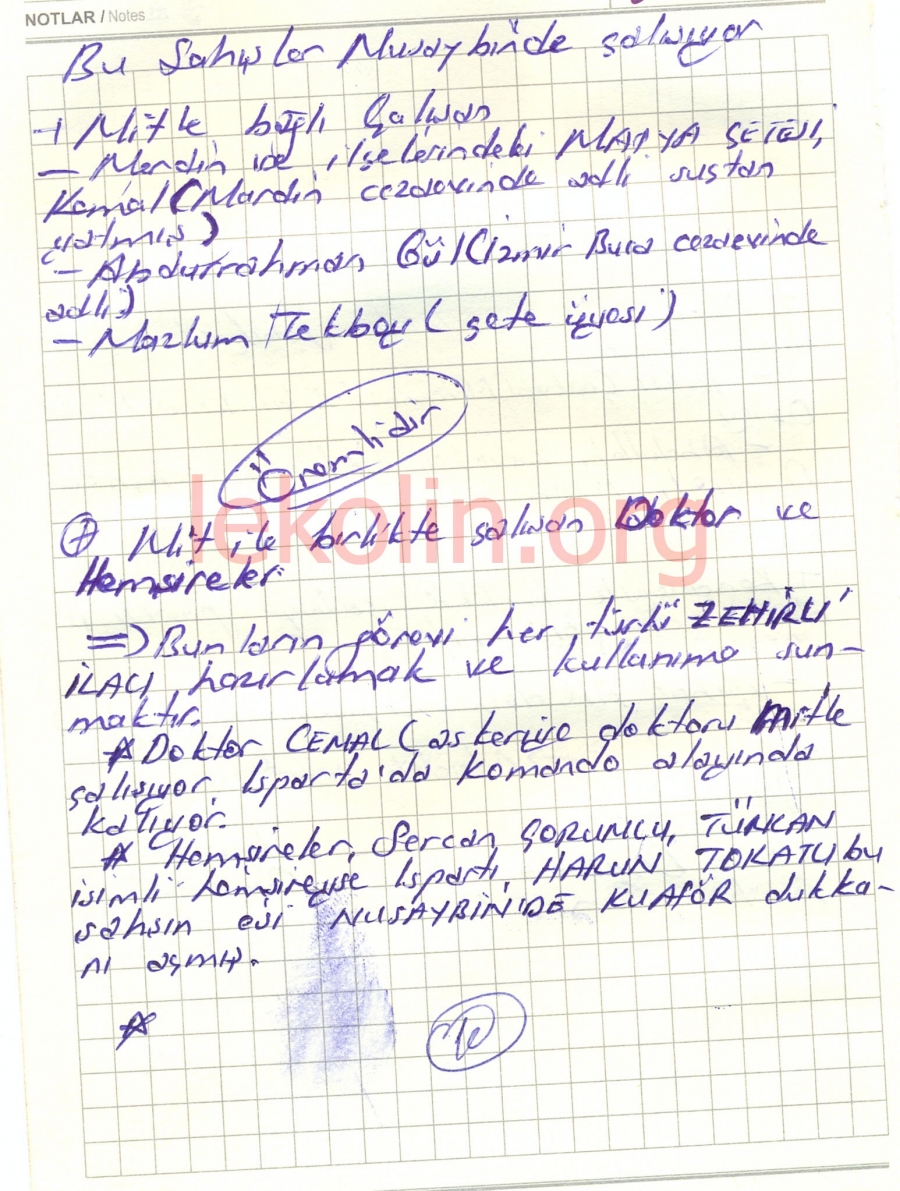 NOTLAR / Notes
Bu Şahışlar Nusaybinde çalışıyor
Mitle bağlı Çalışan
— Mardin ve ilçelerindeki MAFYA ÇETESİ,
Kemal (Mardin cezaevinde adli suçtan
yatmış)
— Abdurrahman Gül (İzmir Buca cezaevinde
adli)
— Mazlum Tekbaş (çete üyesi)
Önemlidir
lekolin.org
+ Mit ile birlikte çalışan Doktor ve
Hemşireler
=> Bunların görevi her türlü ZEHİRLİ
İLACI hazırlamak ve kullanıma sun-
maktır.
* Doktor CEMAL (askeriye doktoru Mitle
çalışıyor Isparta'da komando alayında
kalıyor.
* Hemşireler, Sercan, SORUMLU, TÜRKAN
isimli hemşireyse Ispartı, HARUN TOKATLI bu
şahsın eşi NUSAYBİN'DE KUAFÖR dukka-
nı açmış.
*